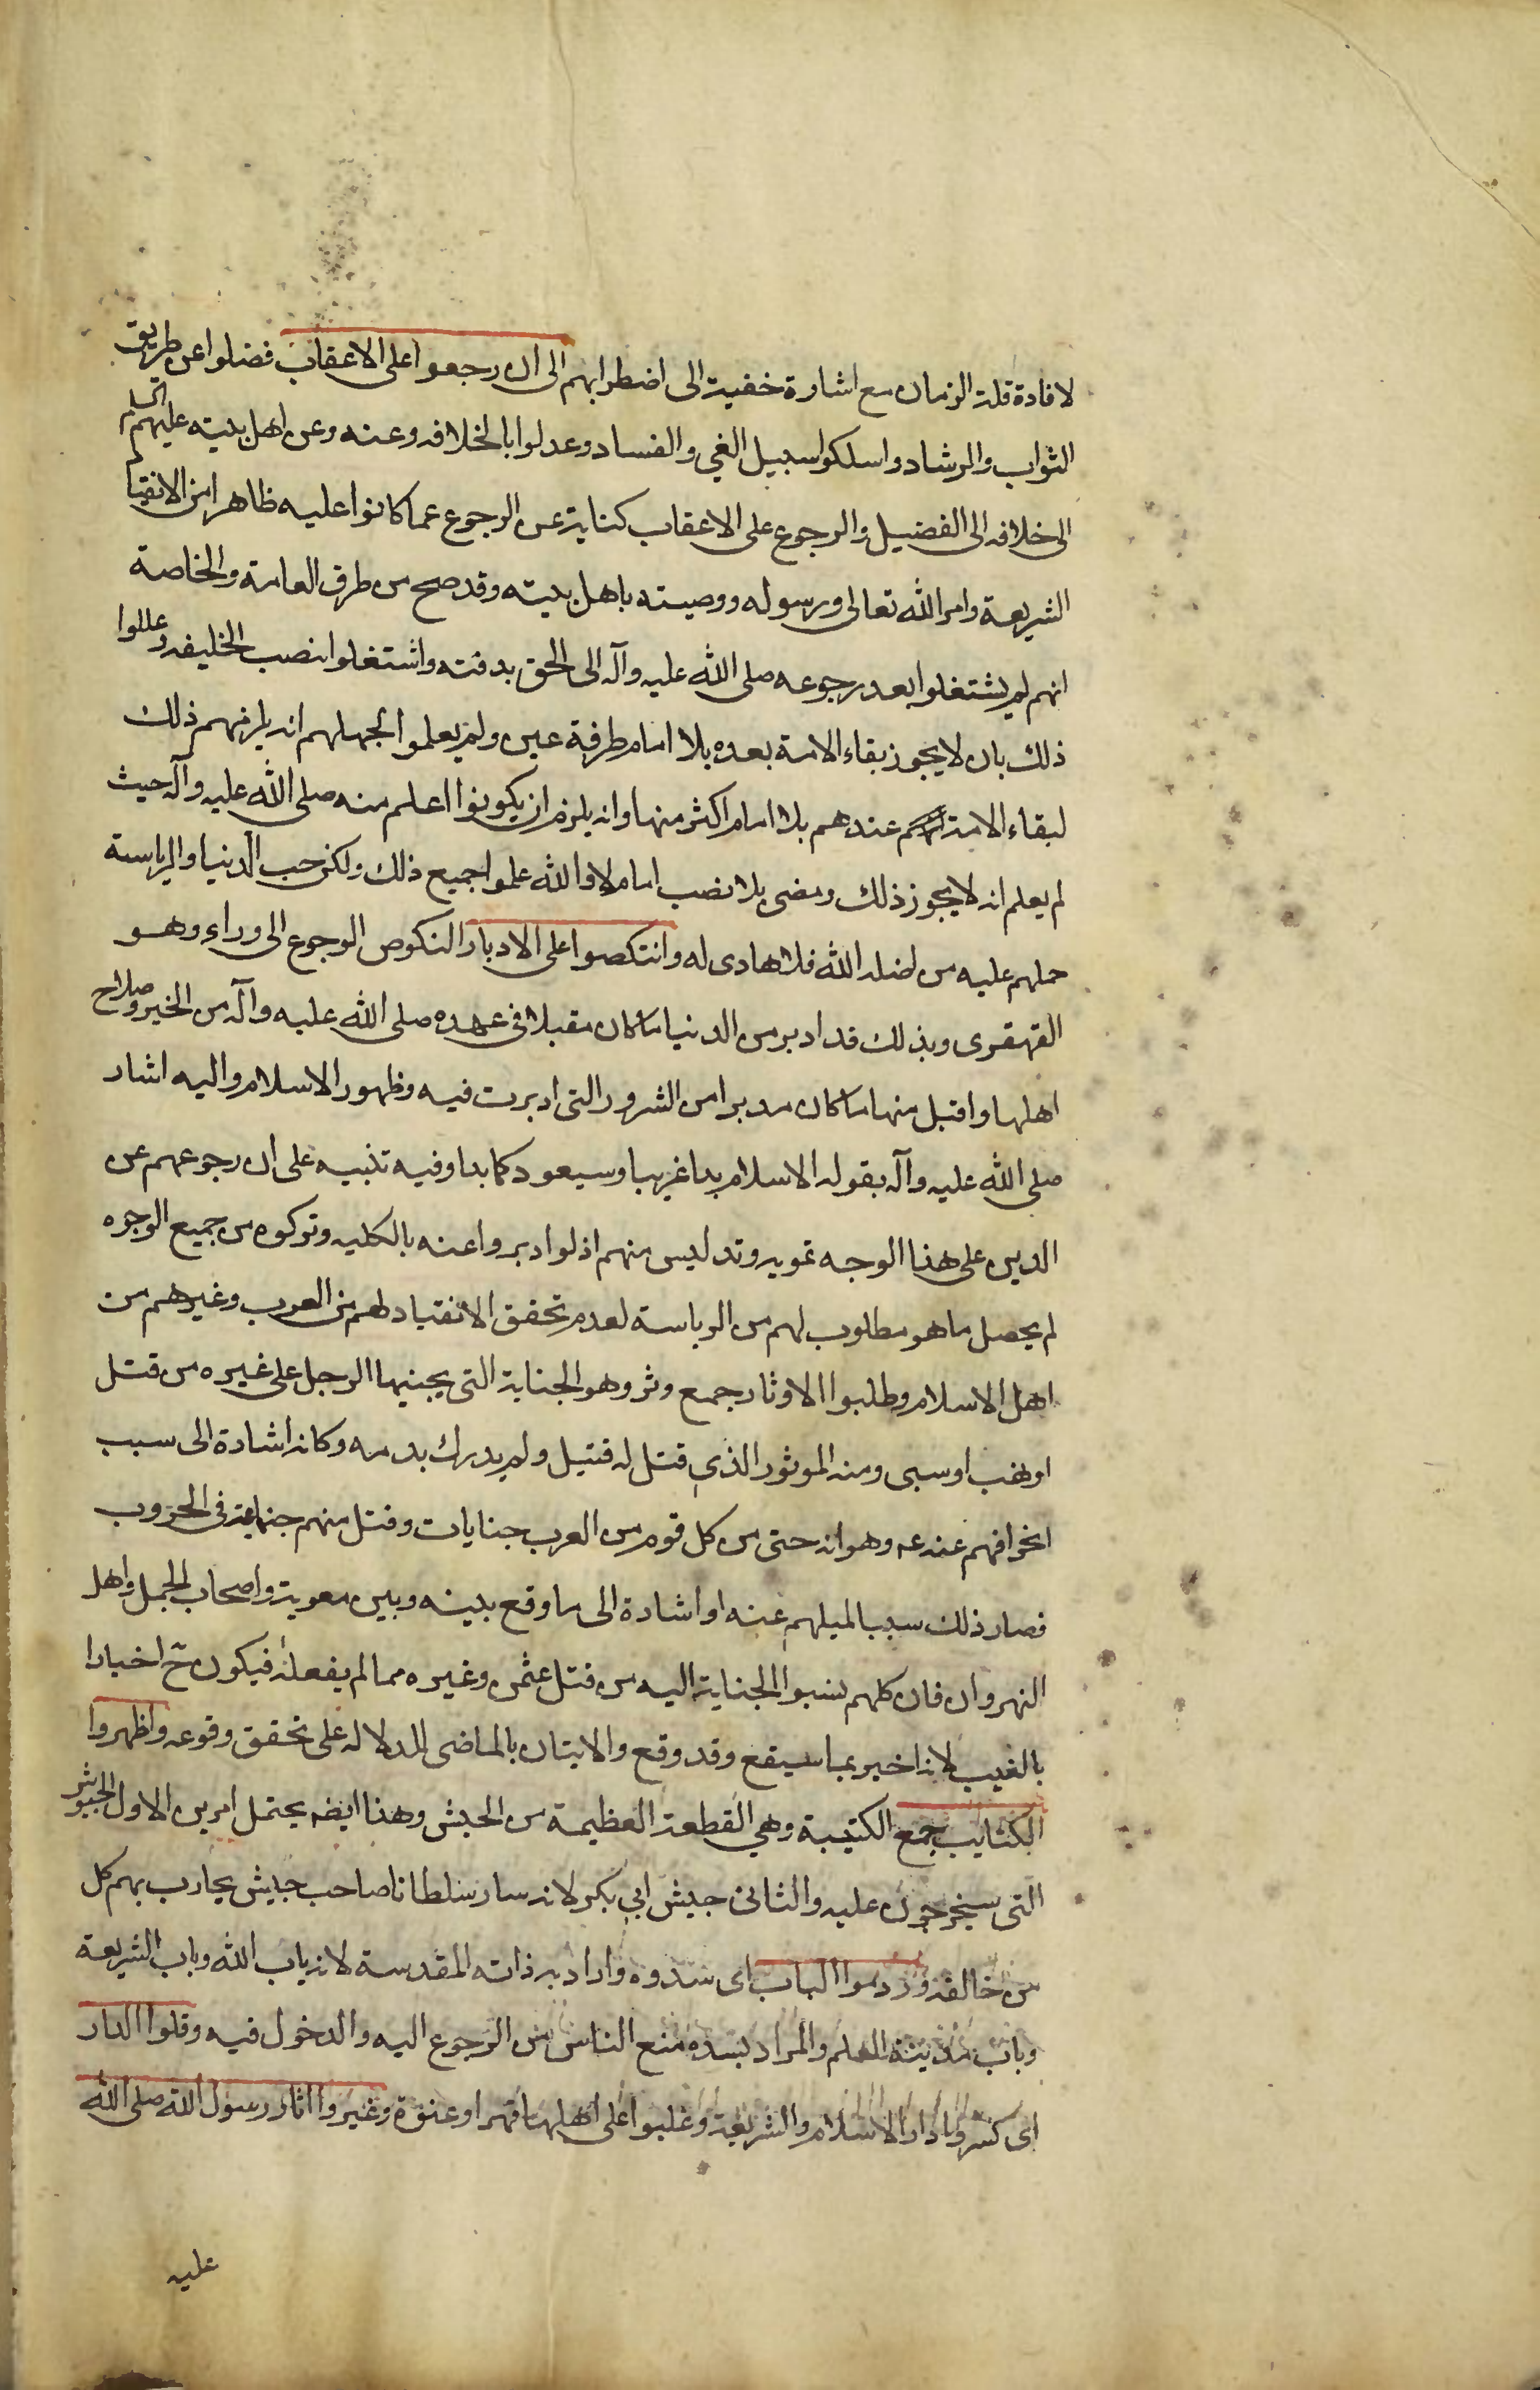 لافادة قلة الزمان مع اشارة خفية الى اضطرابهم الى ان رجعوا على الاعقاب فضلوا عن طريق
الثواب والرشاد واسلكوا سبيل الغي والفساد وعدلوا بالخلافه وعنه وعن اهل بيته عليهم السلم
الى خلافه الى الفضيل والرجوع على الاعقاب كناية عن الرجوع عما كانوا عليه ظاهرا من الانقيا
الشريعة وامر الله تعالى ورسوله ووصيته باهل بيته وقد صح من طرق العامة والخاصة
انهم لم يشتغلوا بعد رجوعه صلى الله عليه وآله الى الحق بدفنه واشتغلوا بنصب الخليفه وعللوا
ذلك بان لا يجوز بقاء الامة بعده بلا امام طرفة عين ولم يعلموا لجهلهم انه يلزمهم ذلك
لبقاء الامة عندهم بلا امام اكثر منها وانه يلزم ان يكونوا اعلم منه صلى الله عليه وآله حيث
لم يعلم انه لا يجوز ذلك ومضى بلا نصب امام لا والله علموا جميع ذلك ولكن حب الدنيا والرياسة
حملهم عليه من اضله الله فلا هادى له وانتكصوا على الادبار النكوص الرجوع الى وراء وهو
القهقرى وبذلك قد ادبر من الدنيا ما كان مقبلا فى عهده صلى الله عليه وآله من الخير وصلاح
اهلها واقبل منها ما كان مدبرا من الشرور التى ادبرت فيه وظهور الاسلام واليه اشار
صلى الله عليه وآله بقوله الاسلام بدا غريبا وسيعود كما بدا وفيه تنبيه على ان رجوعهم عن
الدين على هذا الوجه تمويه وتدليس منهم اذ لو ادبروا عنه بالكليه وتركوه من جميع الوجوه
لم يحصل ما هو مطلوب لهم من الرياسة لعدم تحقق الانقياد لهم من العرب وغيرهم من
اهل الاسلام وطلبوا الاوثار جمع وثر وهو الجناية التى يجنيها الرجل على غيره من قتل
او نهب او سبى ومنه الموثور الذي قتل له قتيل ولم يدرك بدمه وكانه اشادة الى سبب
انحرافهم عنه عه وهو انه حتى من كل قوم من العرب جنايات وقتل منهم جماعة فى الحروب
فصار ذلك سببا لميلهم عنه او اشادة الى ما وقع بينه وبين معوية واصحاب الجمل واهل
النهروان فان كلهم نسبوا الجناية اليه من قتل عثمن وغيره مما لم يفعله فيكون ح اخبارا
بالغيب لانه اخبر بما سيقع وقد وقع والاتيان بالماضى للدلاله على تحقق وقوعه واظهروا
الكتايب جمع الكتيبة وهي القطعة العظيمة من الجيش وهذا ايضه يحتمل امرين الاول الجيوش
التى سيخرجون عليه والثانى جيش ابي بكر لانه سار سلطانا صاحب جيش يحارب بهم كل
من خالفه وردموا الباب اى سدوه واراد به ذاته المقدسة لانه باب الله وباب الشريعة
وباب مدينة العلم والمراد بسده منع الناس من الرجوع اليه والدخول فيه وقلوا الدار
اى كسروا دار الاسلام والشريعة وغلبوا على اهلها قهرا وعنوة وغيروا اثار رسول الله صلى الله
عليه